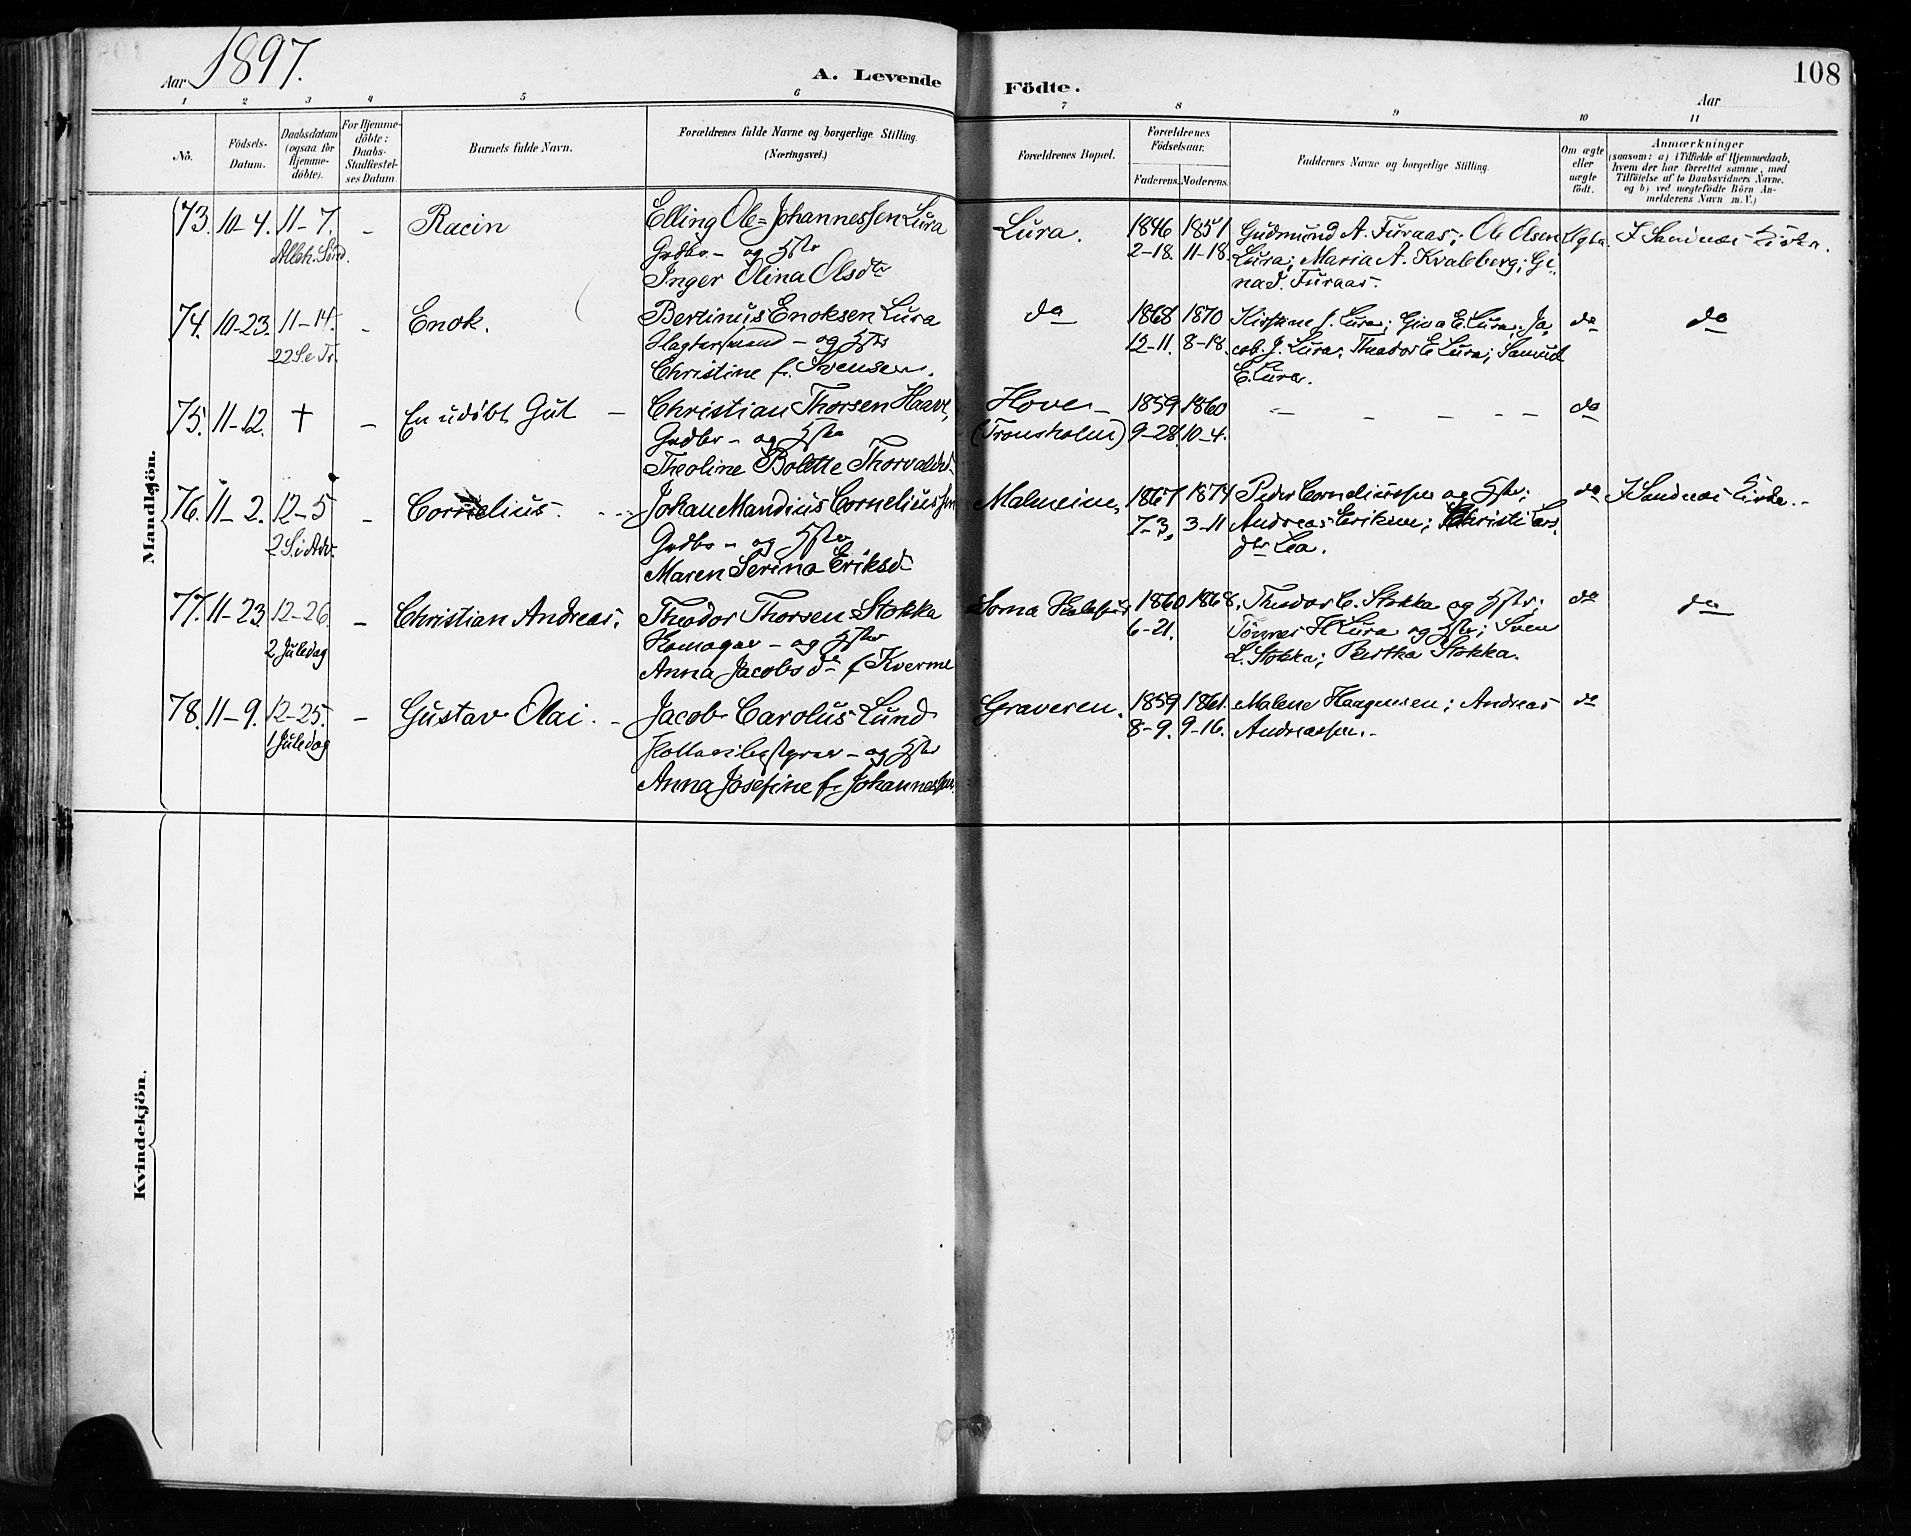 Aar 1897.
A. Levende
Födte.
Aar
108
1 2 3 4 5 6 7 8 9 10 11
No.
Födsels-Datum.
Daabsdatum (ogsaa for Hjemme-döbte).
For Hjemme-döbte: Daabs-Stadfæstel-ses Datum
Barnets fulde Navn.
Forældrenes fulde Navne og borgerlige Stilling. (Næringsvei.)
Forældrenes Bopæl.
Forældrenes Födselsaar.
Faderens. Moderens.
Faddernes Navne og borgerlige Stilling.
Om ægte eller uægte födt.
Anmærkninger
(saasom: a) i Tilfælde af Hjemmedaab, hvem der har forrettet samme, med Tilföielse af to Daabsvidners Navne, og b) ved uægtefödte Börn An-melderens Navn m. V.)
Mandkjön.
73. 10-4. 11-7. - Racin Elling Ole Johannessen Lura Lura. 1846 1851 Gudmund A. Furaas; Ole Olsen Ægte. I Sandnæs Kirke.
Alleh. Sönd. Grdbr - og Hstr 2-18. 11-18. Lura; Maria A. Kvaleberg; Gi-
Inger Olina Olsdtr na J. Furaas.
74. 10-23. 11-14. - Enok. Bertinus Enoksen Lura do 1868 1870 J. Lura; Gina E. Lura; Ja- do do
22 S. e. Tr. - og Hstr 12-11. 8-18. cob J. Lura; Theodor E. Lura; Samuel
Christine f. Svensen. E. Lura.
75. 11-12. † - En udöbt Gut - Christian Thorsen Haave, Hove - 1859 1860 - - - - - do
Grdbr - og Hstr (Tronsholm) 9-28. 10-4.
Theoline Bolette Thorvaldsd.
76. 11-2. 12-5 - Cornelius. Johan Mandius Corneliussen Malmeim, 1867 1874 Peder Corneliussen og Hstr; do I Sandnæs Kirke.
2 S. i Adv. Grdbr - og Hstr 7-3. 3-11 Andreas Eriksen; Christi Lars
Maren Serina Eriksd. dtr Lea.
77. 11-23 12-26. - Christian Andreas, Theodor Thorsen Stokka Soma 1860 1868. Theodor C. Stokka og Hstr; do do
2 Juledag - og Hstr 6-21. Tönnes H. Lura og Hstr; Sven
Anna Jacobsdtr f. Kverme L. Stokka; Bertha Stokka.
78. 11-9. 12-25. - Gustav Olai. - Jacob Carolus Lund Graveren. 1859 1861. Malene Haagensen; Andreas do
1 Juledag - og Hstr 8-9. 9-16. Andreassen.
Anna Josefine f. Johannessen.
Kvindekjön.